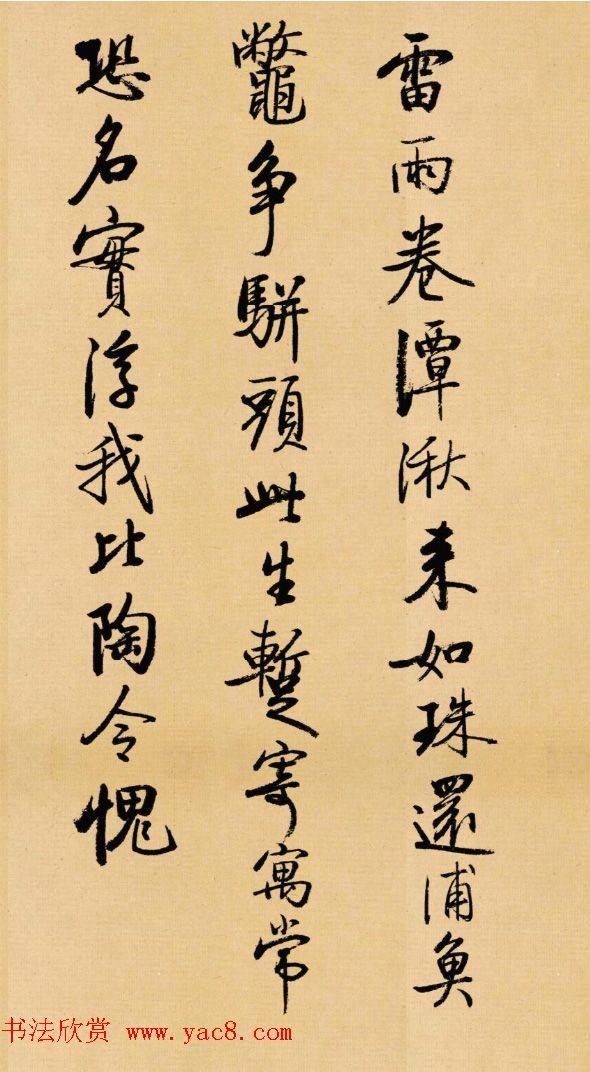 雷雨卷潭湫来如珠還浦魚
鼈争駢頭此生暫寄寓常
恐名實浮我比陶令愧
书法欣赏 www.yac8.com